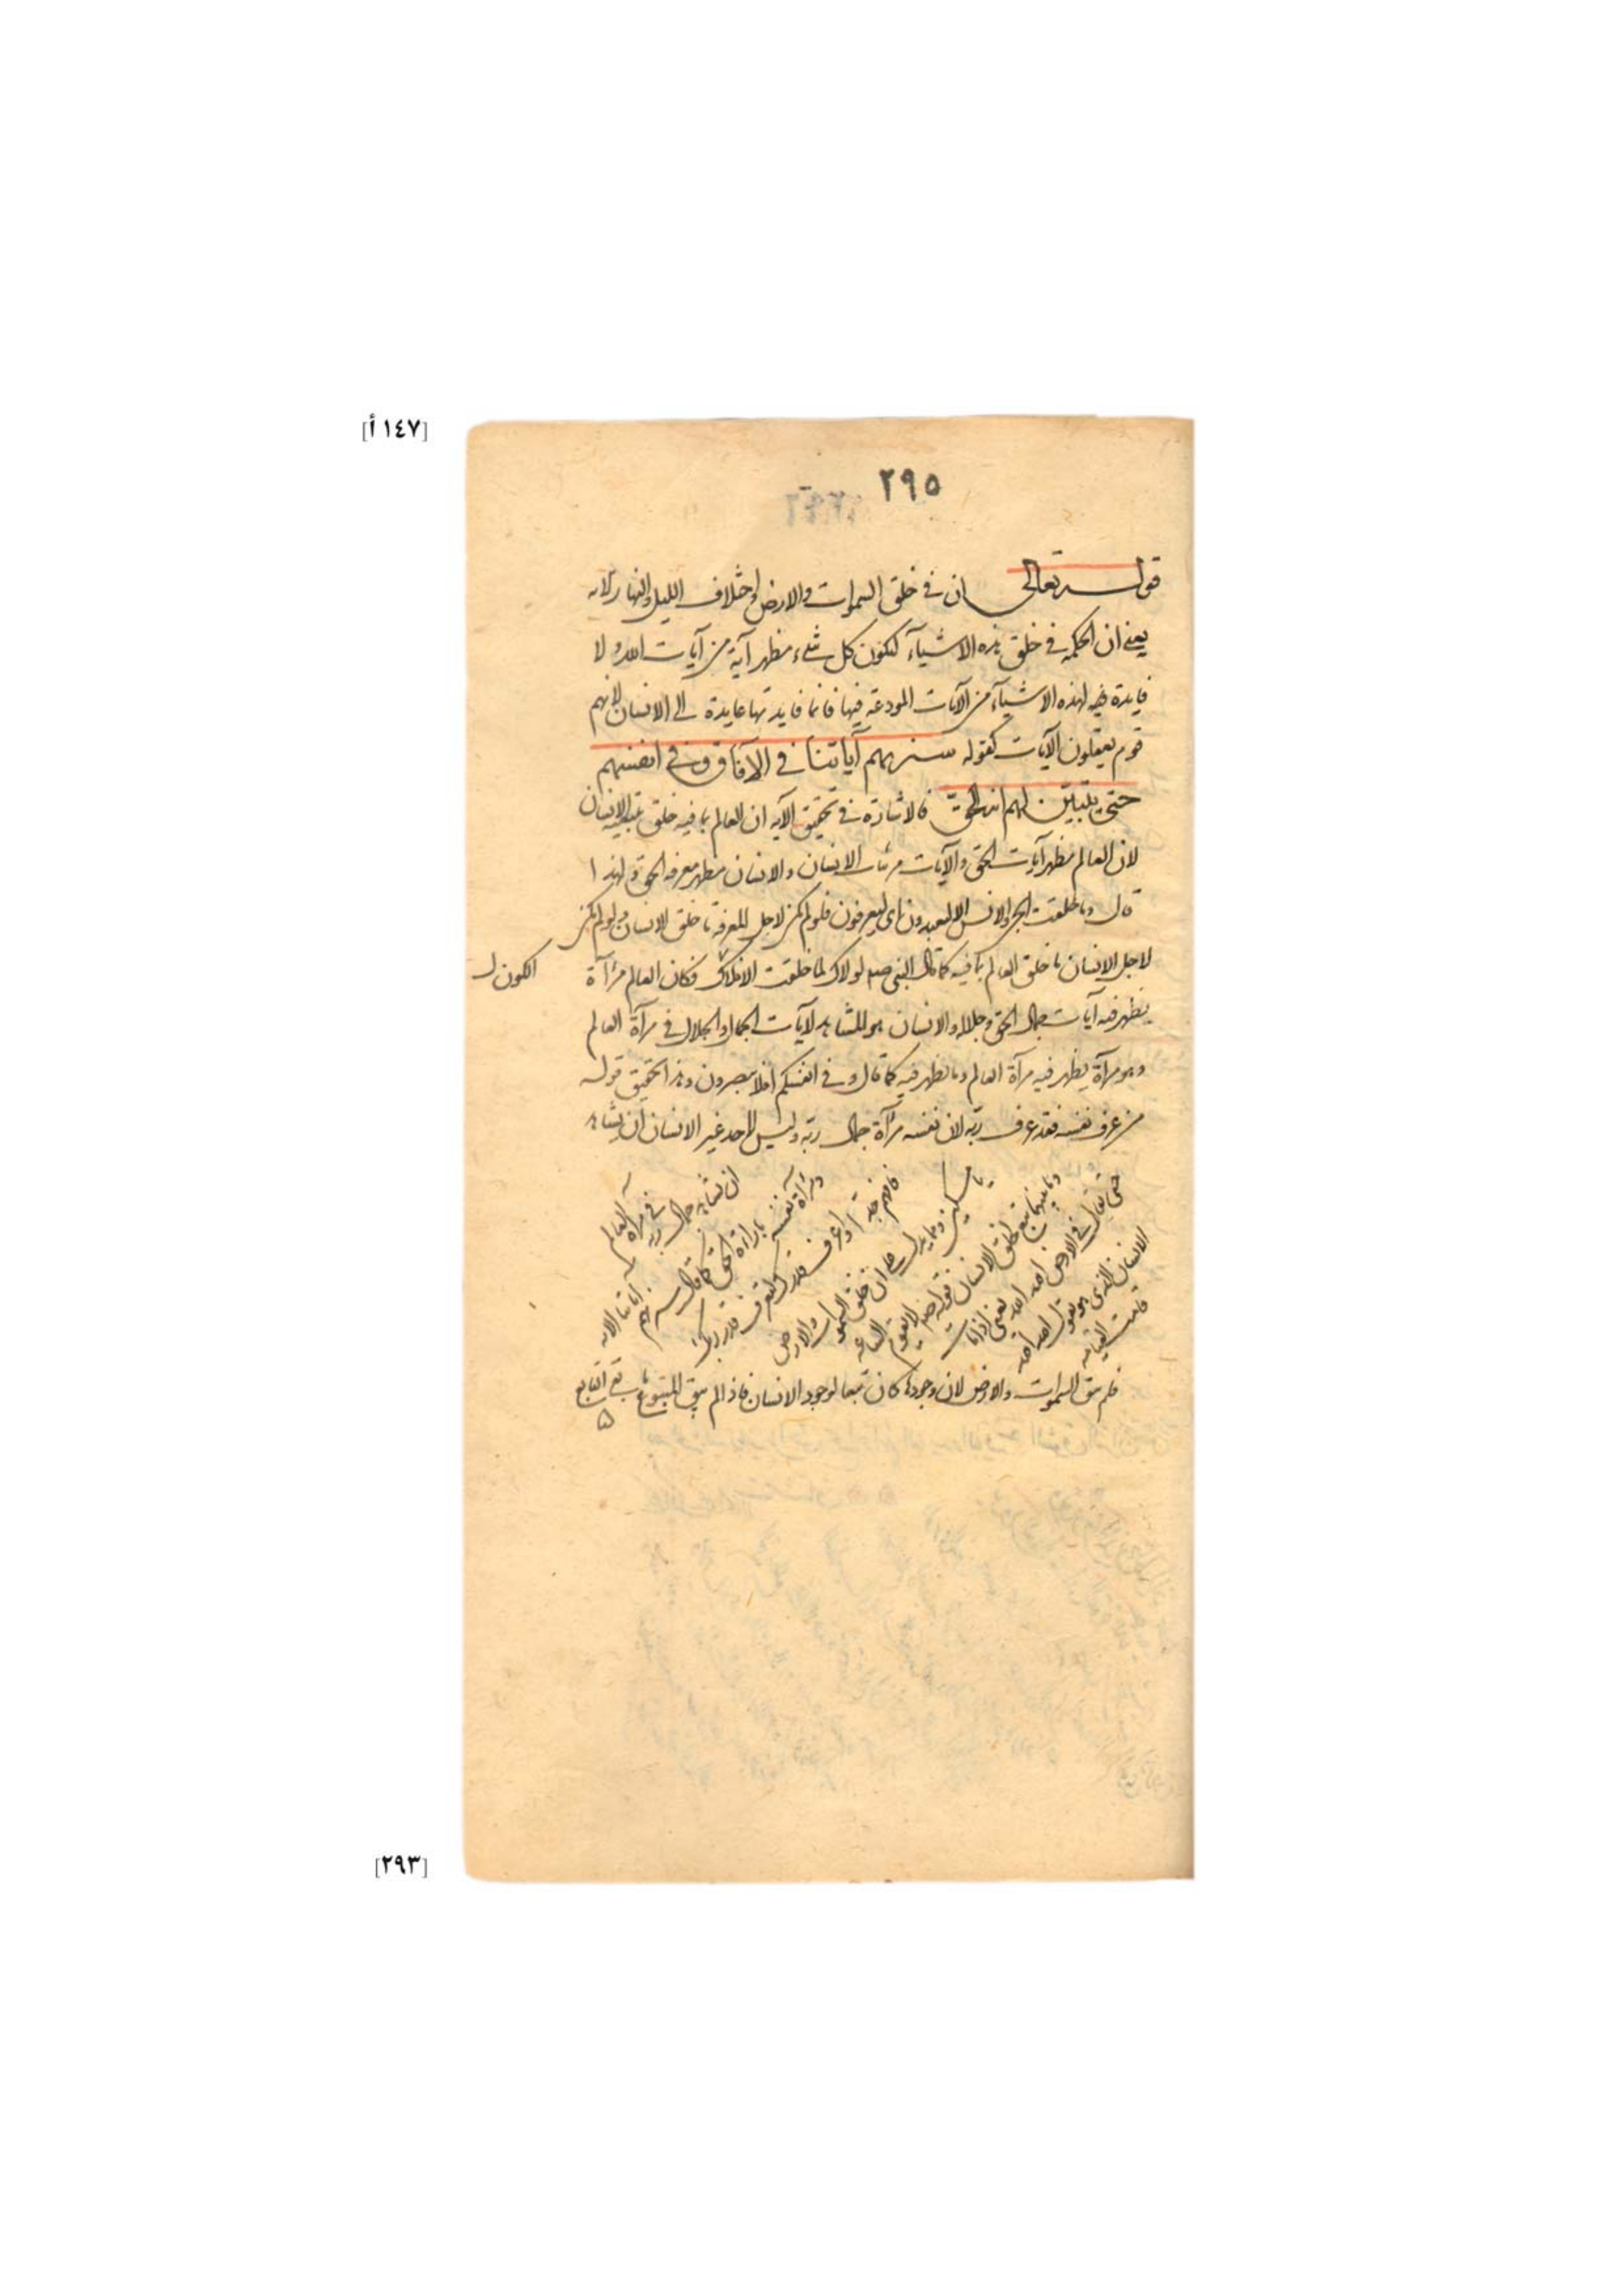 [١٤٧ أ]
٢٩٥
قوله تعالى ان في خلق السموات والارض واختلاف الليل والنهار الآيه
يعني ان الحكمة في خلق هذه الاشياء لتكون كل شئ مظهر آية من آيات الله ولا
فايدة فيه لهذه الاشياء من الآيات المودعة فيها فانما فايدتها عايدة الى الانسان لانهم
قوم يعقلون الآيات كقوله سنريهم آياتنا في الآفاق وفي انفسهم
حتى يتبين لهم انه الحق فالاشارة في تحقيق الآية ان العالم بما فيه خلق تبعية الانسان
لان العالم مظهر آيات الحق والآيات مرئات الانسان والانسان مظهر معرفة الحق ولهذا
قال وما خلقت الجن والانس الا ليعبدون اي ليعرفون فلو لم يكن لاجل المعرفة ما خلق الانسان ولو لم يكن
لاجل الانسان ما خلق العالم بما فيه كما قال النبي صلعم لولاك لما خلقت الافلاك فكان العالم مرآة
الكون ل
يظهر فيه آيات جمال الحق وجلاله والانسان هو المشاهد لآيات الجمال والجلال في مرآة العالم
وهو مرآة يظهر فيه مرآة العالم وما يظهر فيه كما قال وفي انفسكم افلا تبصرون وهذا تحقيق قوله
من عرف نفسه فقد عرف ربه لان نفسه مرآة جمال ربه وليس لاحد غير الانسان ان يشاهد
ان يشاهد جمال ربه في مرآة العالم
ومرآة نفسه باراءة الحق كما قال سنريهم آياتنا الآيه
فافهم جدا واعرف قدرك لتعرف قدر ربك
يا مسكين ومما يدل على ان خلق السموات والارض
وما بينهما تبع خلق الانسان قوله صلعم لا تقوم الساعه
حتى لا يقال في الارض الله الله يعني اذا مات
الانسان الذي هو يقول الله الله
قامت القيامه
فلم يبق السموات والارض لان وجودها كان تبعا لوجود الانسان فاذا لم يبق المتبوع ما بقي التابع
[٢٩٣]